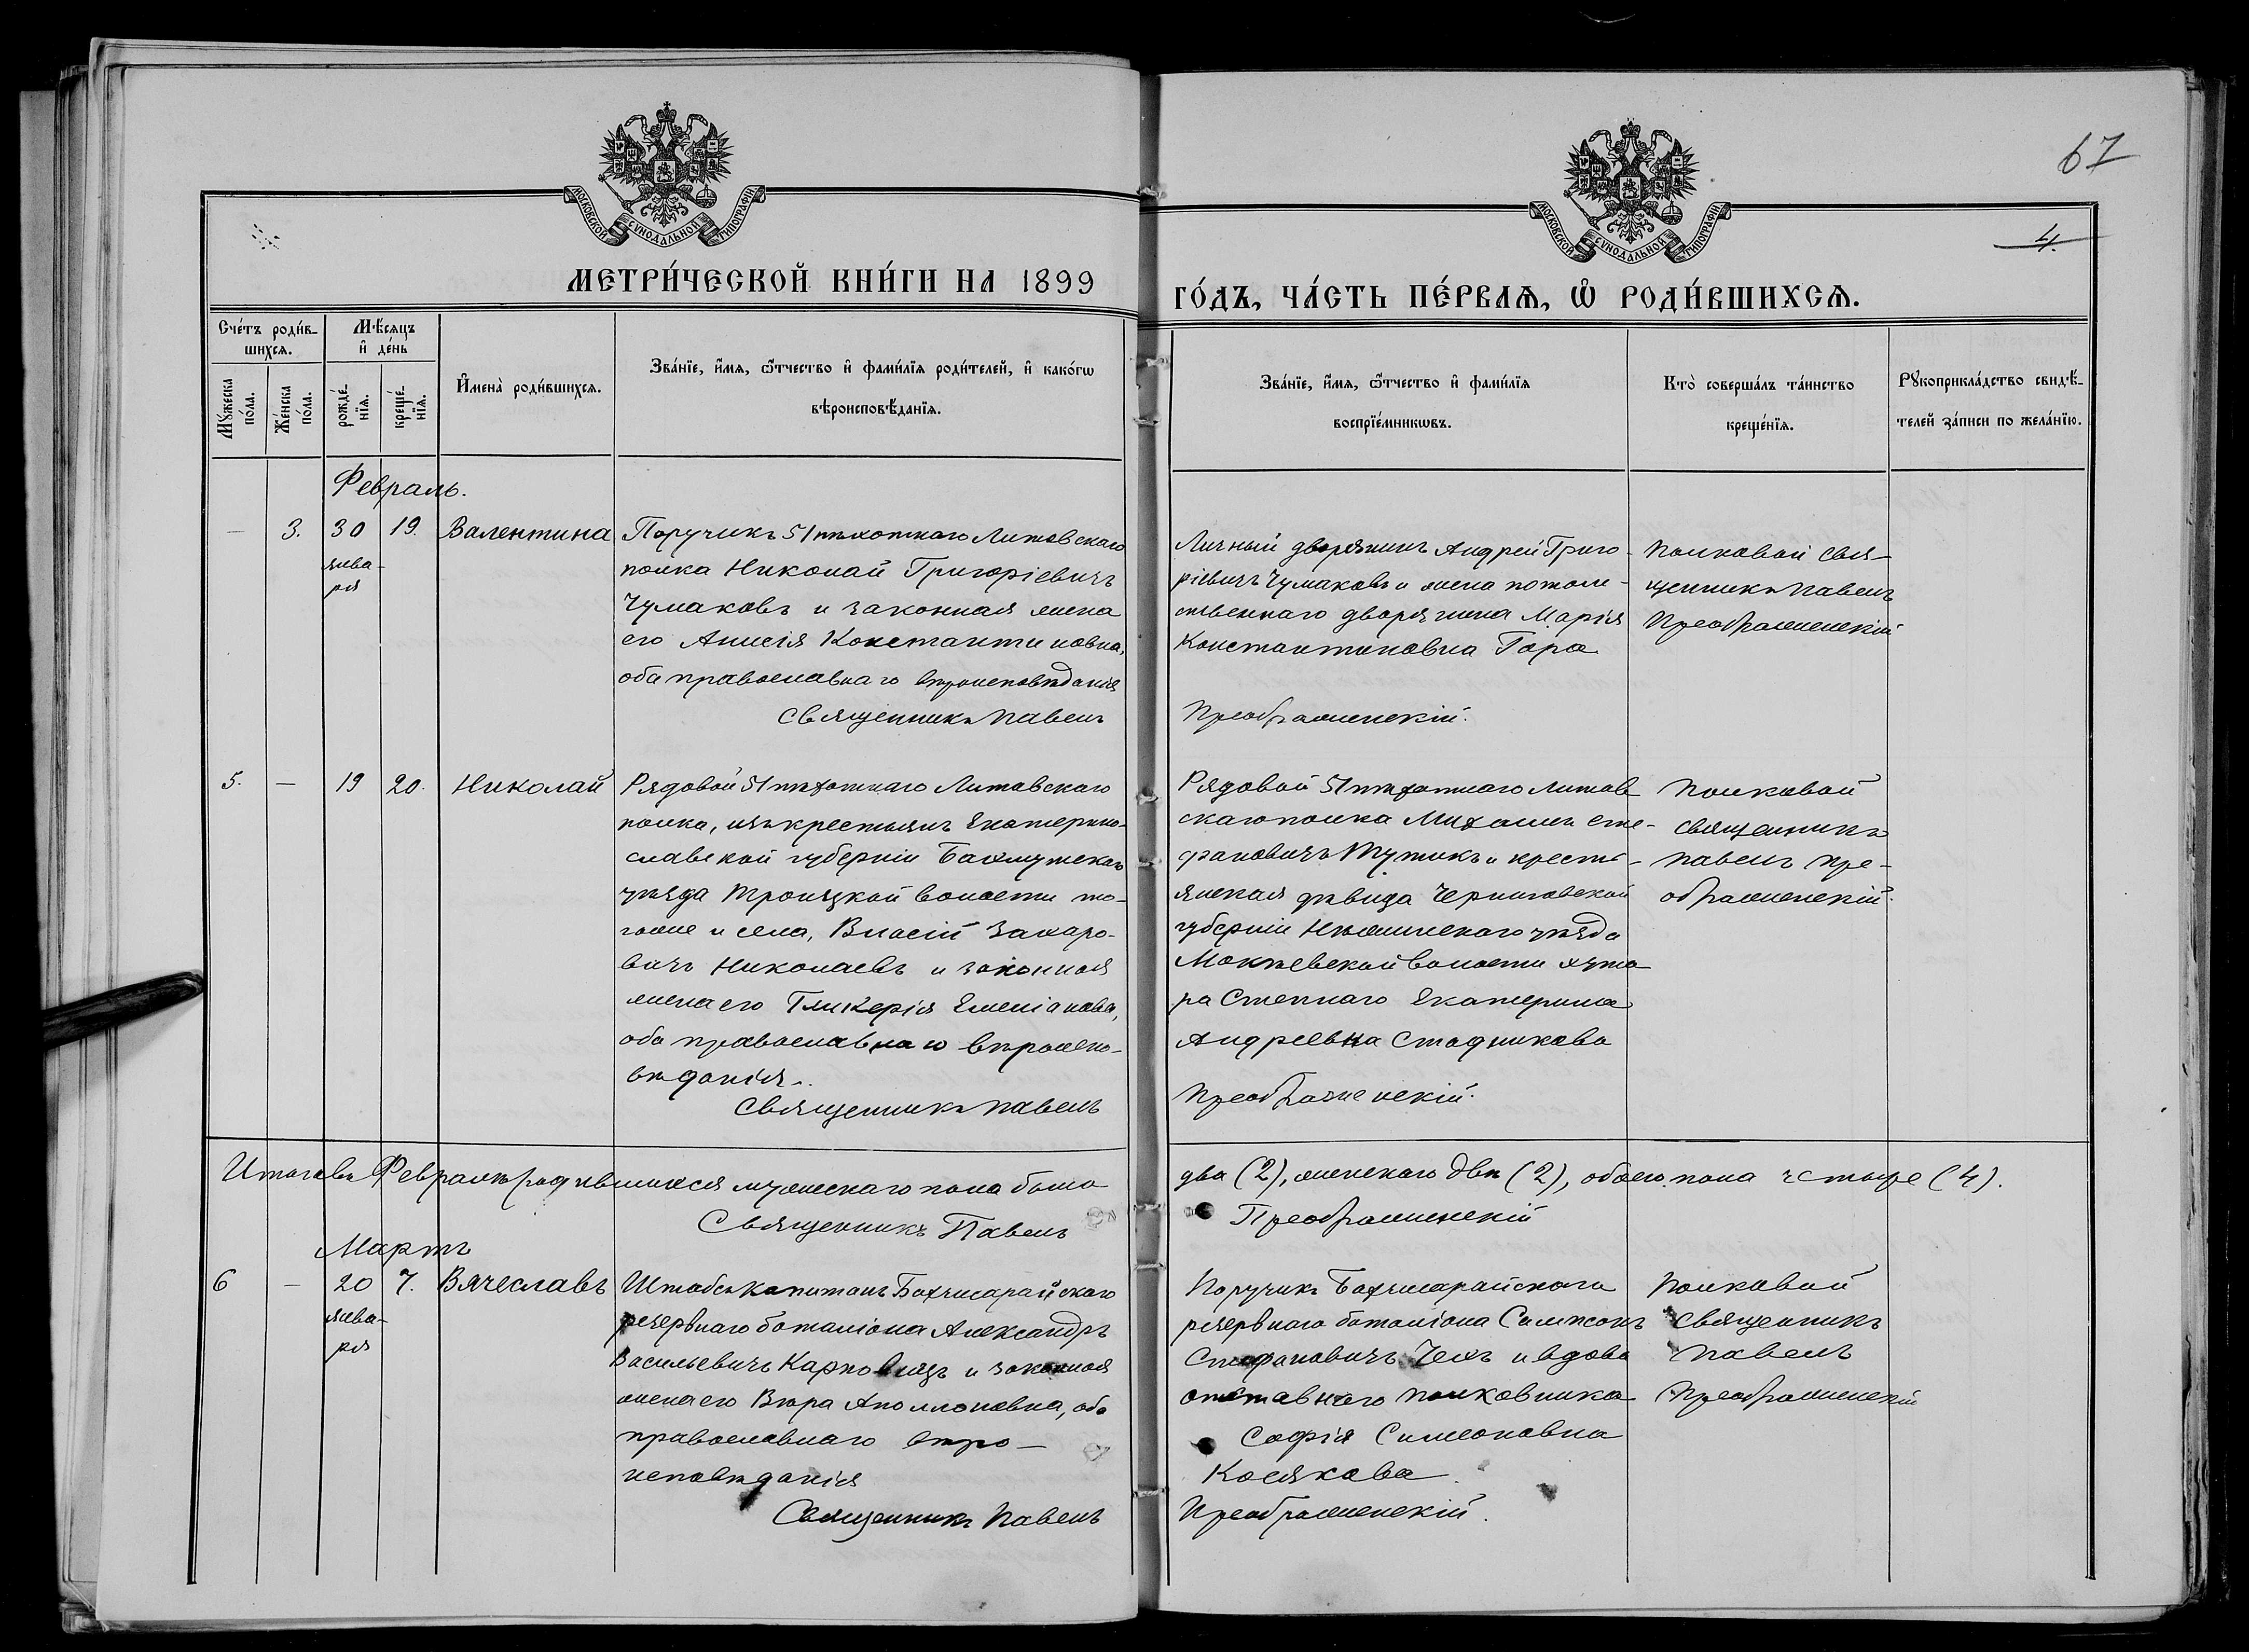 67
4.
МОСКОВСКОЙ СУНОДАЛЬНОЙ ТИПОГРАФІИ
МОСКОВСКОЙ СУНОДАЛЬНОЙ ТИПОГРАФІИ
МЕТРИ́ЧЕСКОЙ КНИ́ГИ НА 1899
ГО́ДЪ, ЧА́СТЬ ПЕ́РВАѦ, Ѡ҆ РОДИ́ВШИХСѦ.
Сче́тъ роди́в-
шихсѧ.
Мѣ́сяцъ
и҆ де́нь
Мꙋ́жеска
по́ла.
Же́нска
по́ла.
рожде́-
нїѧ.
креще́-
нїѧ.
И҆мена̀ роди́вшихсѧ.
Зва́нїе, и҆́мѧ, ѻ҆́тчество и҆ фами́лїѧ роди́телей, и҆ како́гѡ
вѣроисповѣ́данїѧ.
Зва́нїе, и҆́мѧ, ѻ҆́тчество и҆ фами́лїѧ
воспрїе́мникѡвъ.
Кто̀ соверша́лъ та́инство
креще́нїѧ.
Рꙋкоприкла́дство свидѣ́-
телей за́писи по жела́нїю.
Февраль.
— 3. 30 19. Валентина
янва-
ря
Поручикъ 51 пѣхотнаго Литовскаго
полка Николай Григоріевичъ
Чумаковъ и законная жена
его Анисія Константиновна,
оба православнаго вѣроисповѣданія
Священникъ Павелъ
Личный дворянинъ Андрей Григо-
ріевичъ Чумаковъ и жена потом-
ственнаго дворянина Марія
Константиновна Гора
Преображенскій.
Полковой свя-
щенникъ Павелъ
Преображенскій
5. — 19 20. Николай
Рядовой 51 пѣхотнаго Литовскаго
полка, изъ крестьянъ Екатерино-
славской губерніи Бахмутскаго
уѣзда Троицкой волости то-
гоже и села, Власій Захаро-
вичъ Николаевъ и законная
жена его Гликерія Емеліанова,
оба православнаго вѣроиспо-
вѣданія.
Священникъ Павелъ
Рядовой 51 пѣхотнаго Литов
скаго полка Михаилъ Сте-
фановичъ Тутикъ и кресть-
янская дѣвица Черниговской
губерніи Нѣжинскаго уѣзда
Мокіевской волости хуто
ра Степнаго Екатерина
Андреевна Стадникова
Преображенскій.
Полковой
священникъ
Павелъ Пре-
ображенскій.
Итого въ Февралѣ родившихся мужескаго пола было
два (2), женскаго двѣ (2), обоего пола четыре (4).
Священникъ Павелъ
Преображенскій
Мартъ
6 — 20 7. Вячеславъ
янва-
ря
Штабсъ капитанъ Бахчисарайскаго
резервнаго баталіона Александръ
Васильевичъ Карповичъ и законная
жена его Вѣра Аполлоновна, оба
православнаго вѣро-
исповѣданія
Священникъ Павелъ
Поручикъ Бахчисарайскаго
резервнаго баталіона
Стефановичъ Чехъ и вдова
отставнаго полковника
Софія Симеоновна
Косякова.
Преображенскій.
Полковой
священникъ
Павелъ
Преображенскій